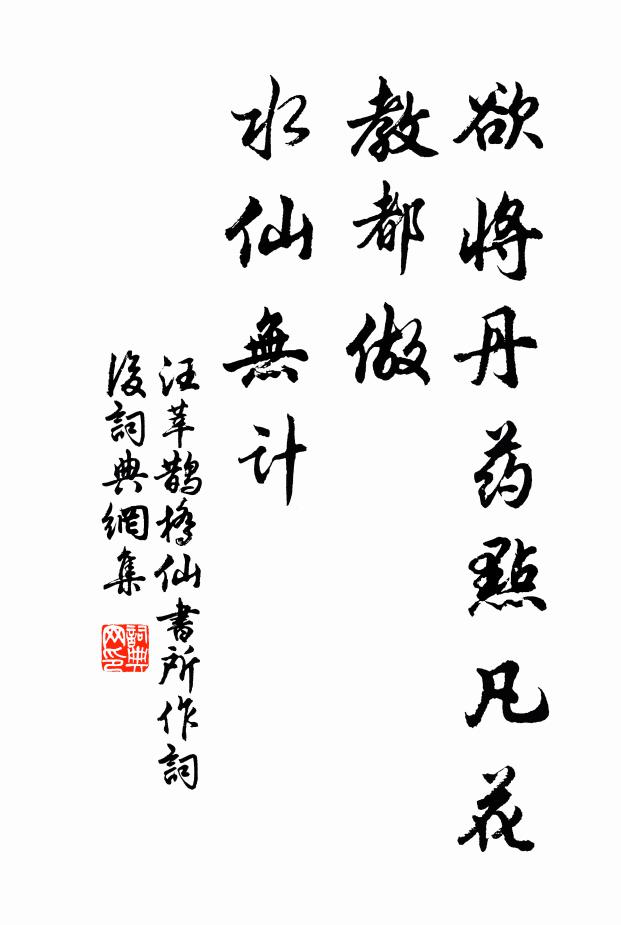 欲将丹药點凡花
教都做
水仙無计
汪莘鹊橋仙書所作詞
後詞典網集
詞典網印